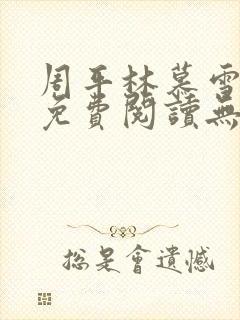 周平林慕雪
免費閱讀無
總是會遺憾